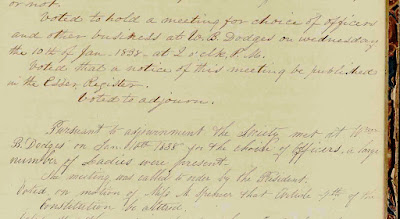 or not.
Voted to hold a meeting for choice of officers
and other business at W. B. Dodges on wednesday
the 10th of Jan. 1838 at 2 o'clk, P.M.
Voted that a notice of this meeting be published
in the Essex Register.
Voted to adjourn.
Pursuant to adjournment the Society met at Wm
B. Dodges on Jan. 10th 1838 for the choice of Officers, a large
number of Ladies were present.
The meeting was called to order by the President.
Voted, on motion of Miss M Spencer that Article 4th of the
Constitution be altered.